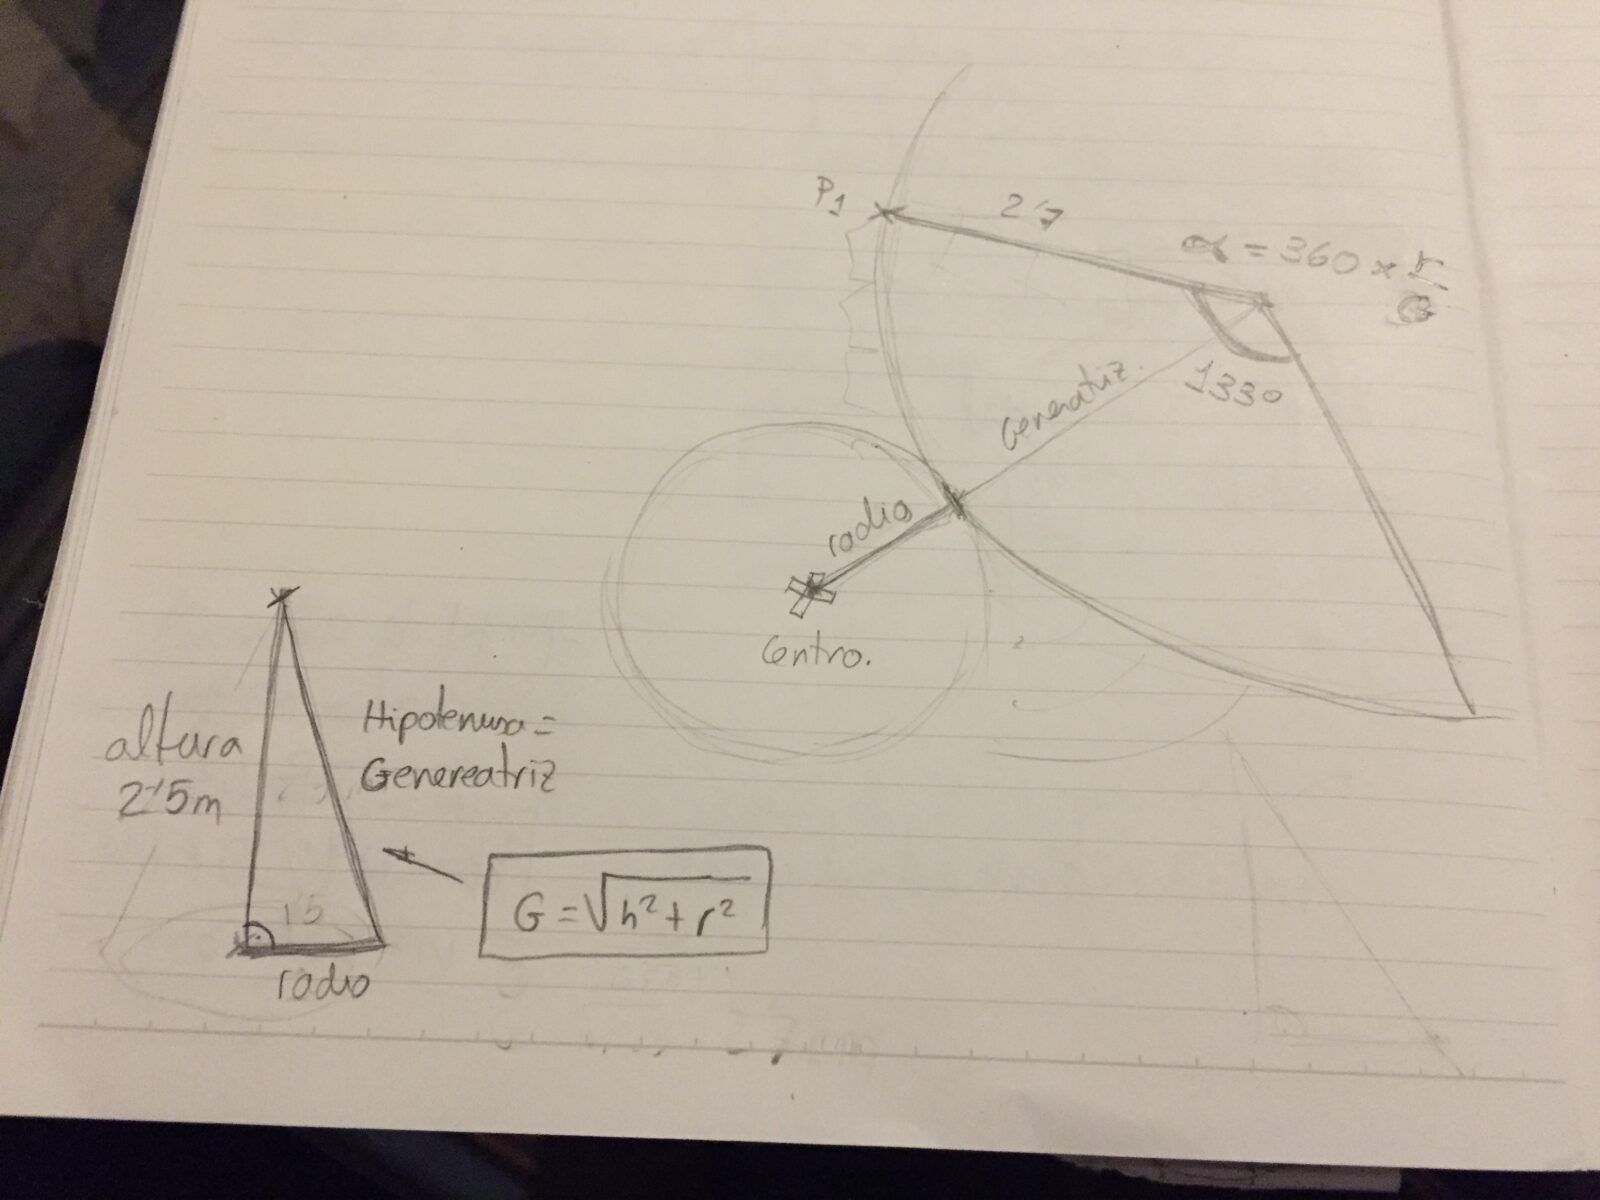 P1
2'7
α = 360 × r/G
1330
Generatriz.
radio
Centro.
altura
2'5m
Hipotenusa =
Genereatriz
15
G = √h² + r²
radio